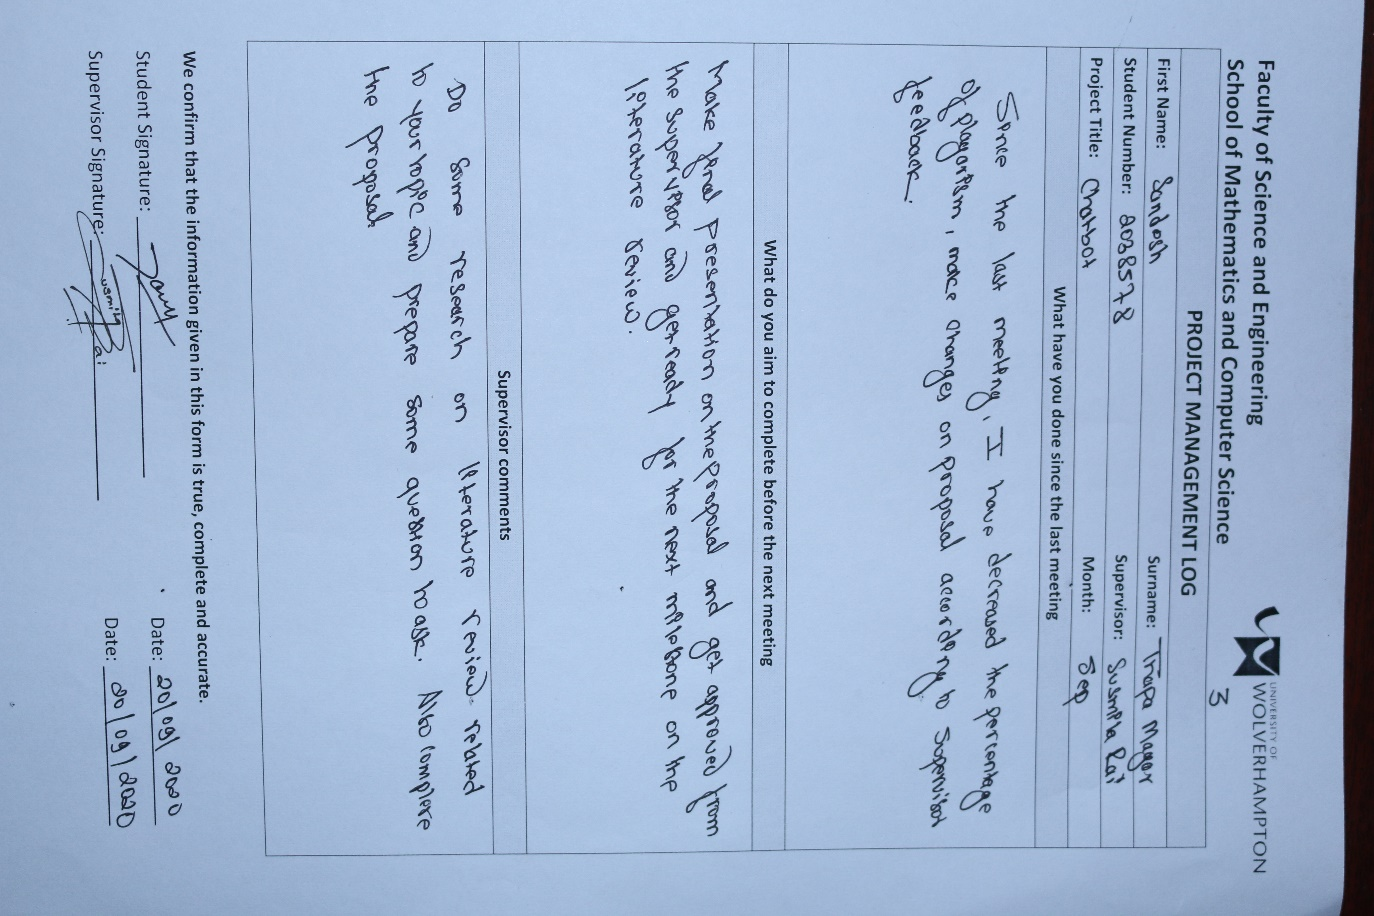 Faculty of Science and Engineering
School of Mathematics and Computer Science
UNIVERSITY OF
WOLVERHAMPTON
3
PROJECT MANAGEMENT LOG
First Name: Sandesh Surname: Thapa Magar
Student Number: 2038578 Supervisor: Susmita Rai
Project Title: Chatbot Month: Sep
What have you done since the last meeting
Since the last meeting, I have decreased the percentage
of plagarism, make changes on proposal according to supervisor
feedback.
What do you aim to complete before the next meeting
Make final presentation on the proposal and get approved from
the supervisor and get ready for the next milestone on the
literature review.
Supervisor comments
Do some research on literature review related
to your topic and prepare some question to ask. Also complete
the proposal.
We confirm that the information given in this form is true, complete and accurate.
Student Signature: Date: 20/09/2020
Supervisor Signature: Date: 20/09/2020